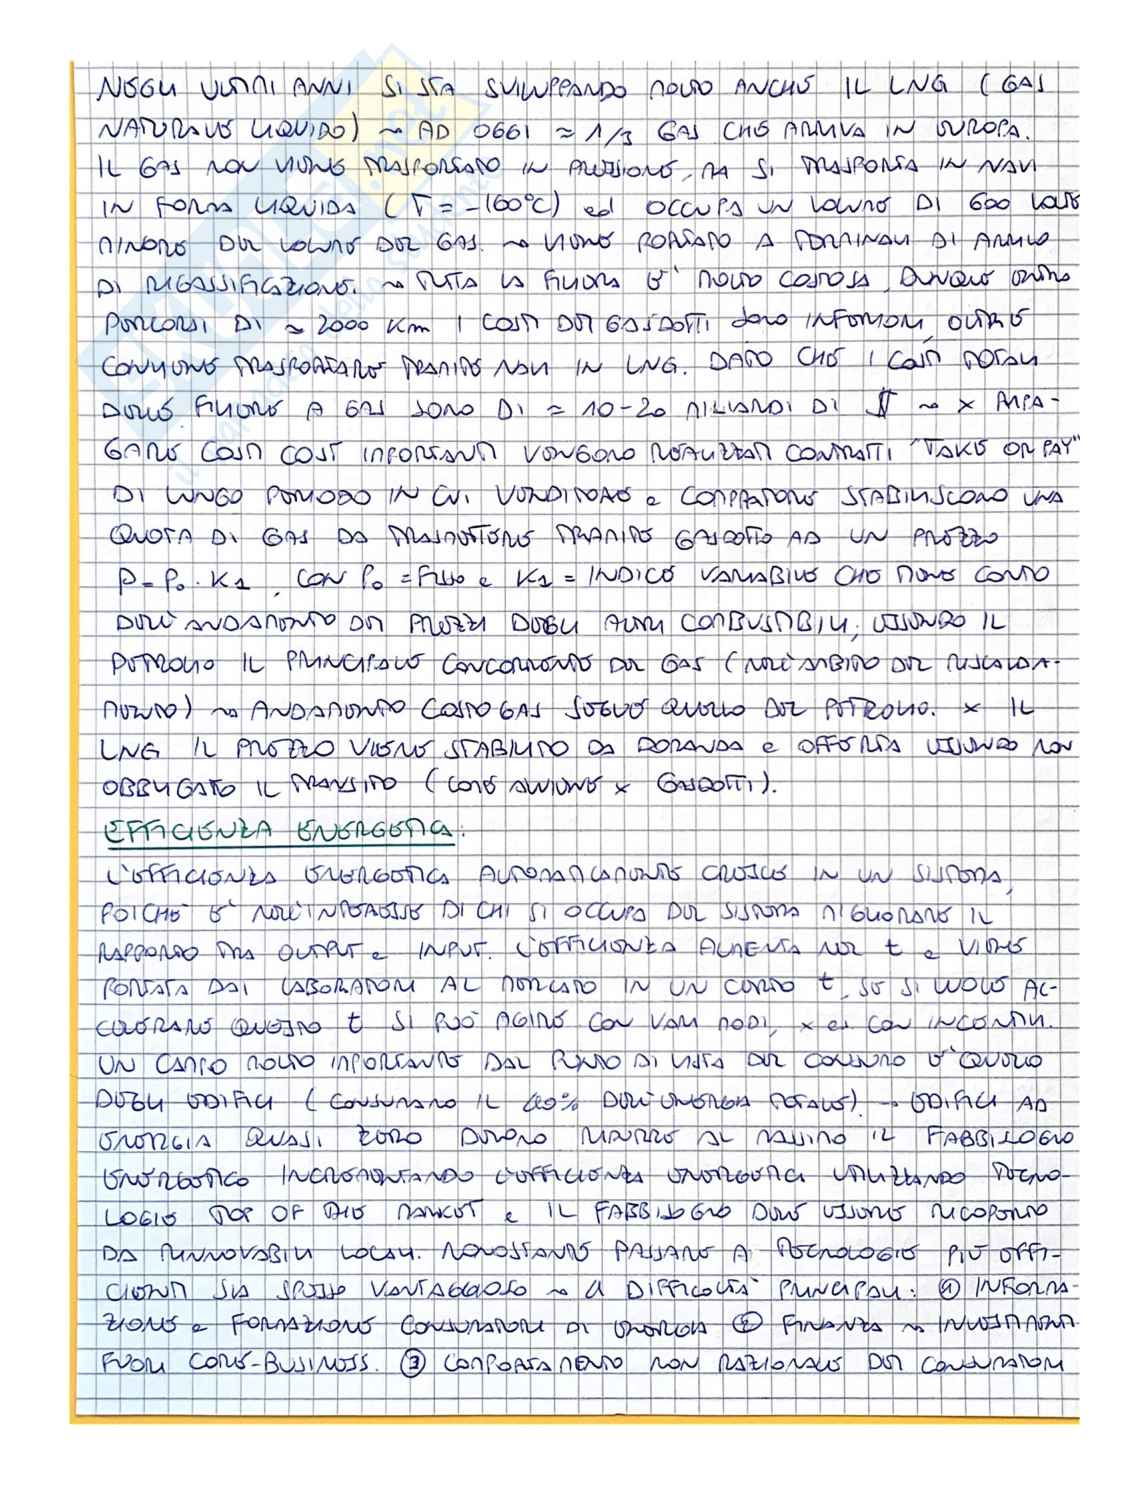 NEGLI ULTIMI ANNI SI STA SVILUPPANDO MOLTO ANCHE IL LNG (GAS
NATURALE LIQUIDO) ~ AD OGGI ≈ 1/3 GAS CHE ARRIVA IN EUROPA.
IL GAS NON VIENE TRASPORTATO IN PRESSIONE, MA SI TRASPORTA IN NAVI
IN FORMA LIQUIDA (T = -160°C) ed OCCUPA UN VOLUME DI 600 VOLTE
MINORE DEL VOLUME DEL GAS. ~ VIENE PORTATO A TERMINALI DI ARRIVO
DI RIGASSIFICAZIONE. ~ TUTTA LA FILIERA E' MOLTO COSTOSA, DUNQUE ENTRO
PERCORSI DI ≈ 2000 Km I COSTI DEI GASDOTTI sono INFERIORI, OLTRE
CONVIENE TRASPORTARE TRAMITE NAVI IN LNG. DATO CHE I COSTI TOTALI
DELLE FILIERE A GAS SONO DI ≈ 10-20 MILIARDI DI $ ~ x RIPA-
GARE COSTI COSI' IMPORTANTI VENGONO REALIZZATI CONTRATTI "TAKE OR PAY"
DI LUNGO PERIODO IN CUI VENDITORE e COMPRATORE STABILISCONO UNA
QUOTA DI GAS DA TRASMETTERE TRAMITE GASDOTTO AD UN PREZZO
P = P₀ · K₁, CON P₀ = FISSO e K₁ = INDICE VARIABILE CHE TIENE CONTO
DELL'ANDAMENTO DEI PREZZI DEGLI ALTRI COMBUSTIBILI; ESSENDO IL
PETROLIO IL PRINCIPALE CONCORRENTE DEL GAS (NELL'AMBITO DEL RISCALDA-
MENTO) ~ ANDAMENTO COSTO GAS SEGUE QUELLO DEL PETROLIO. x IL
LNG IL PREZZO VIENE STABILITO DA DOMANDA e OFFERTA ESSENDO NON
OBBLIGATO IL TRANSITO (COME AVVIENE x GASDOTTI).
EFFICIENZA ENERGETICA:
L'EFFICIENZA ENERGETICA AUTOMATICAMENTE CRESCE IN UN SISTEMA,
POICHE' E' NELL'INTERESSE DI CHI SI OCCUPA DEL SISTEMA MIGLIORARE IL
RAPPORTO TRA OUTPUT e INPUT. L'EFFICIENZA AUMENTA NEL t e VIENE
PORTATA DAI LABORATORI AL MERCATO IN UN CERTO t, SE SI VUOLE AC-
CELERARE QUESTO t SI PUÒ AGIRE CON VARI MODI, x es CON INCENTIVI.
UN CAMPO MOLTO IMPORTANTE DAL PUNTO DI VISTA DEL CONSUMO E' QUELLO
DEGLI EDIFICI (CONSUMANO IL 40% DELL'ENERGIA TOTALE). → EDIFICI AD
ENERGIA QUASI ZERO DEVONO RIDURRE AL MASSIMO IL FABBISOGNO
ENERGETICO INCREMENTANDO L'EFFICIENZA ENERGETICA UTILIZZANDO TECNO-
LOGIE TOP OF THE MARKET e IL FABBISOGNO DEVE ESSERE RICOPERTO
DA RINNOVABILI LOCALI. NONOSTANTE PASSARE A TECNOLOGIE PIÙ EFFI-
CIENTI SIA SPESSO VANTAGGIOSO ~ LE DIFFICOLTÀ PRINCIPALI: ① INFORMA-
ZIONE e FORMAZIONE CONSUMATORI DI ENERGIA ② FINANZA ~ INVESTIMENTI
FUORI CORE-BUSINESS. ③ COMPORTAMENTO NON RAZIONALE DEI CONSUMATORI